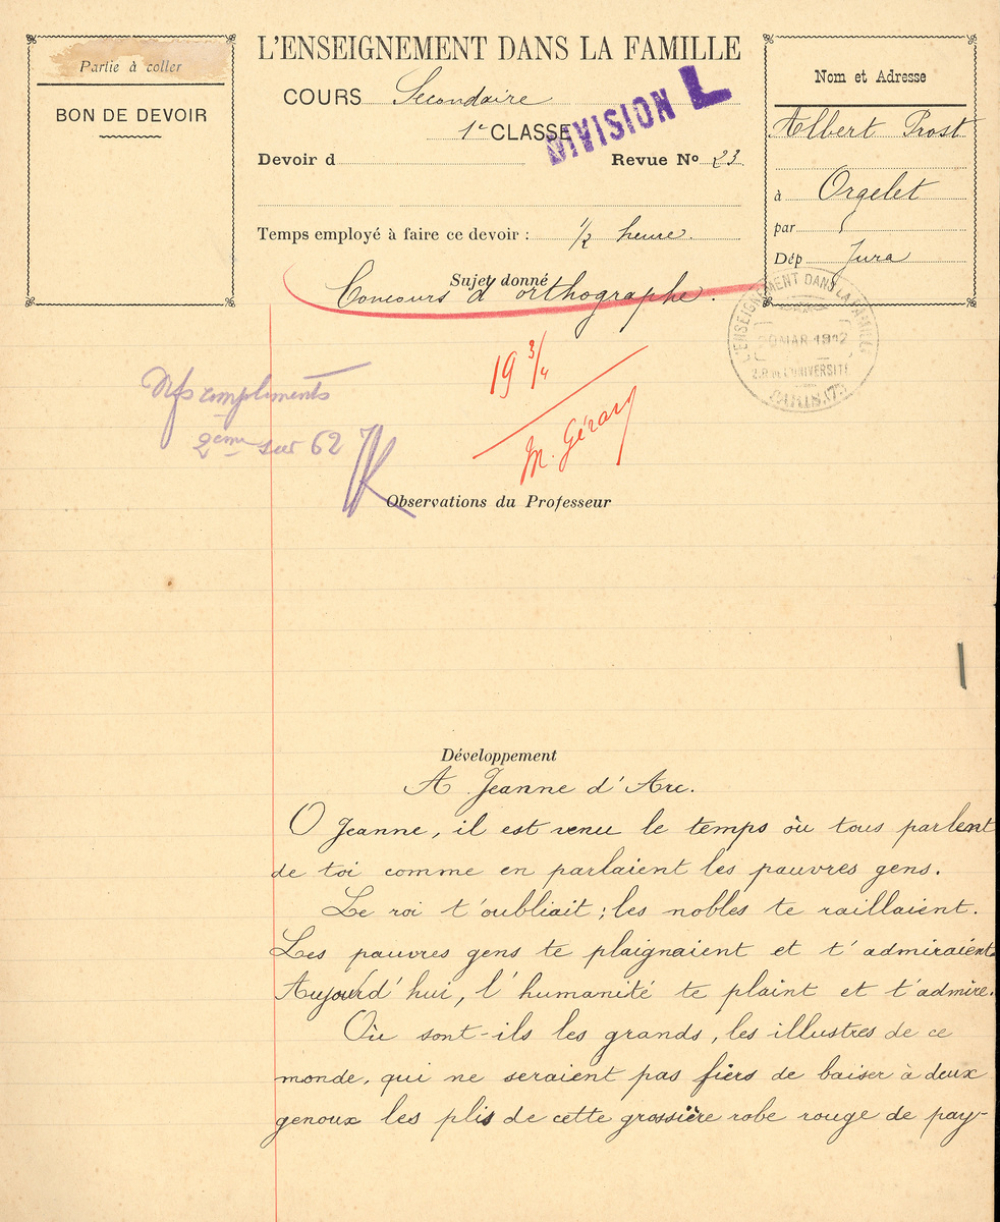 Partie à coller
BON DE DEVOIR
L'ENSEIGNEMENT DANS LA FAMILLE
COURS Secondaire
1re CLASSE
DIVISION L
Devoir d
Revue No 23
Temps employé à faire ce devoir : 1/2 heure.
Nom et Adresse
Albert Prost
à Orgelet
par
Dép Jura
Sujet donné
Concours d'orthographe.
L'ENSEIGNEMENT DANS LA FAMILLE
MAR
PARIS (7e)
19 3/4
M. Gérard
Mes compliments
2ème sur 62
Observations du Professeur
Développement
A Jeanne d'Arc.
O Jeanne, il est venu le temps où tous parlent
de toi comme en parlaient les pauvres gens.
Le roi t'oubliait ; les nobles te raillaient.
Les pauvres gens te plaignaient et t'admiraient.
Aujourd'hui, l'humanité te plaint et t'admire.
Où sont-ils les grands, les illustres de ce
monde, qui ne seraient pas fiers de baiser à deux
genoux les plis de cette grossière robe rouge de pay-